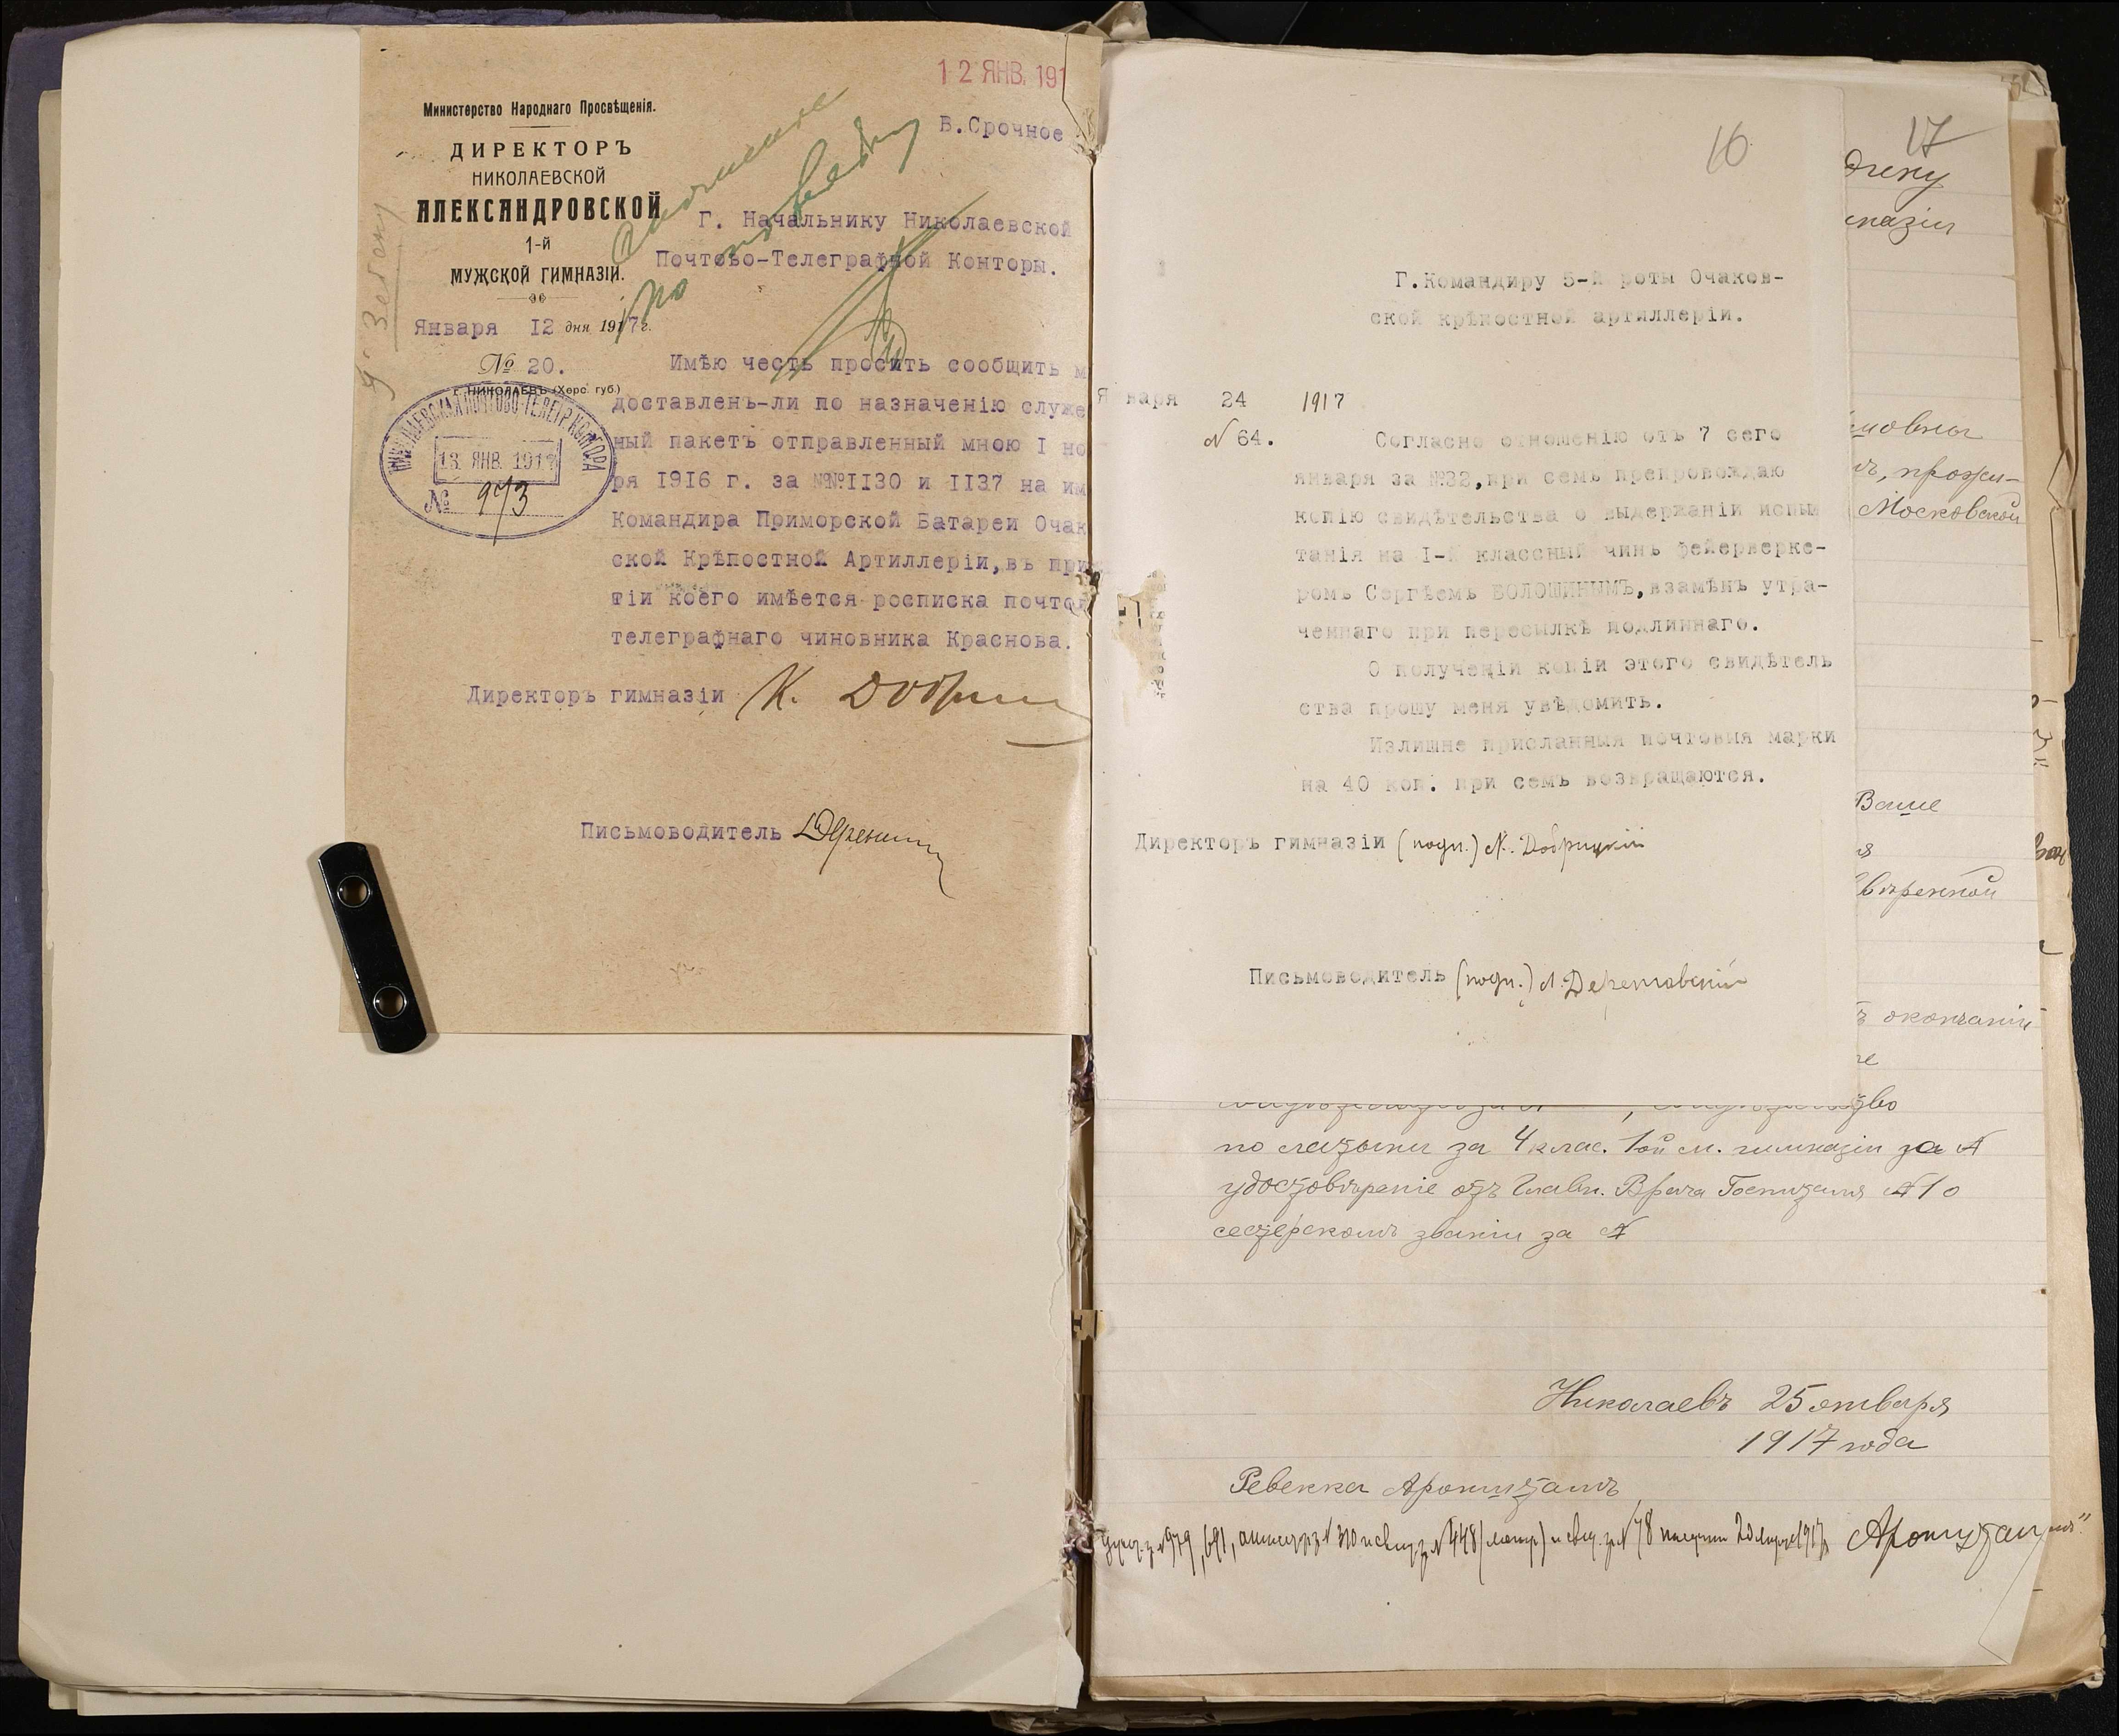 12 ЯНВ. 191
В.Срочное
Министерство Народнаго Просвѣщенія.
ДИРЕКТОРЪ
НИКОЛАЕВСКОЙ
АЛЕКСАНДРОВСКОЙ
1-й
МУЖСКОЙ ГИМНАЗІИ.
Января 12 дня 1917г.
№ 20.
г. НИКОЛАЕВЪ (Херс. губ.)
НИКОЛАЕВСКАЯ ПОЧТОВО-ТЕЛЕГР. КОНТОРА
13 ЯНВ. 1917
№ 973
Г. Начальнику Николаевской
Почтово-Телеграфной Конторы.
Имѣю честь просить сообщить м
доставленъ-ли по назначенію служе
ный пакетъ отправленный мною I но
ря 1916 г. за №№II30 и II37 на им
Командира Приморской Батареи Очак
ской Крѣпостной Артиллеріи,въ при
тіи коего имѣется росписка почтов
телеграфнаго чиновника Краснова.
Директоръ гимназіи К.
Письмоводитель
16
Г.Командиру 5-й роты Очаков-
ской крѣпостной артиллеріи.
Января 24 1917
№ 64.
Согласно отношенію отъ 7 сего
января за №32,при семъ препровождаю
копію свидѣтельства о выдержаніи испы
танія на I-й классный чинъ фейерверке-
ромъ Сергѣемъ ВОЛОШИНЫМЪ,взамѣнъ утра-
ченнаго при пересылкѣ подлиннаго.
О полученіи копіи этого свидѣтель
ства прошу меня увѣдомить.
Излишне присланныя почтовыя марки
на 40 коп. при семъ возвращаются.
Директоръ гимназіи (подп.) К. Добрицкій
Письмоводитель (подп.)
17
мназіи
ъ, прожи-
Московской
Ваше
ввѣренной
ъ окончаніи
ство
по латыни за 4 клас. 1ой м. гимназіи за №
удостовѣреніе отъ Главн. Врача Госпиталя №1 о
сестерскомъ званіи за №
Николаевъ 25 января
1917 года
Ревекка Аронштамъ